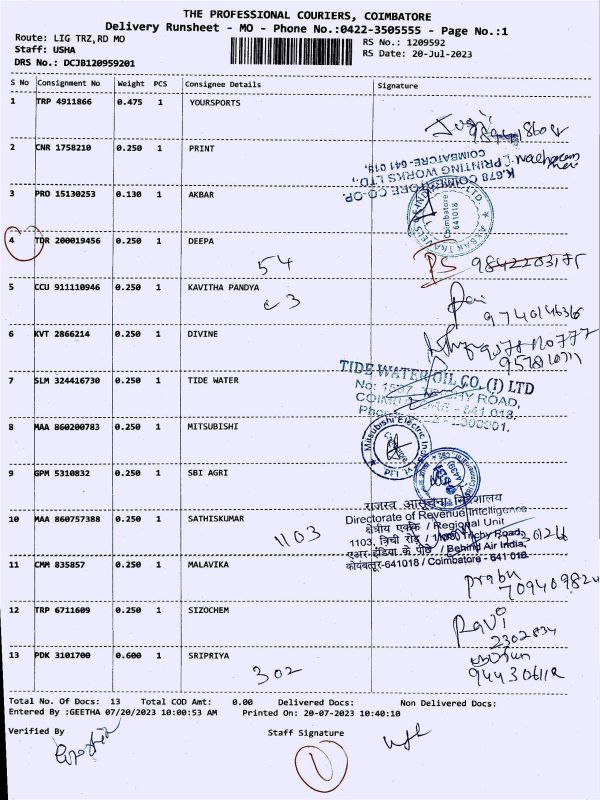 THE PROFESSIONAL COURIERS, COIMBATORE
Delivery Runsheet - MO - Phone No.:0422-3505555 - Page No.:1
Route: LIG TRZ,RD MO
RS No.: 1209592
Staff: USHA
RS Date: 20-Jul-2023
DRS No.: DCJB120959201
S No Consignment No Weight PCS Consignee Details Signature
1 TRP 4911866 0.475 1 YOURSPORTS
2 CNR 1758210 0.250 1 PRINT
K.678 COIMBATORE CO-OP.
PRINTING WORKS LTD.,
COIMBATORE- 641 018.
3 PRO 15130253 0.130 1 AKBAR
AKBAR TRAVELS OF INDIA LTD.
Coimbatore
641018
4 TDR 200019456 0.250 1 DEEPA
54
5 CCU 911110946 0.250 1 KAVITHA PANDYA
c 3
6 KVT 2866214 0.250 1 DIVINE
7 SLM 324416730 0.250 1 TIDE WATER
TIDE WATER OIL CO. (I) LTD
ROAD,
641 018.
8 MAA 860200783 0.250 1 MITSUBISHI
Mitsubishi Electric
9 GPM 5310832 0.250 1 SBI AGRI
राजस्व आसूचना निदेशालय
Directorate of Revenue Intelligence
क्षेत्रीय एकक / Regional Unit
10 MAA 860757388 0.250 1 SATHISKUMAR
1103
1103, त्रिची रोड / 1103, Trichy Road,
एअर-इंडिया के पीछे / Behind Air India,
कोयंबत्तूर-641018 / Coimbatore - 641 018
11 CMM 835857 0.250 1 MALAVIKA
prabu
12 TRP 6711609 0.250 1 SIZOCHEM
Ravi
2302834
13 PDK 3101700 0.600 1 SRIPRIYA
302
Total No. Of Docs: 13 Total COD Amt: 0.00 Delivered Docs: Non Delivered Docs:
Entered By :GEETHA 07/20/2023 10:00:53 AM Printed On: 20-07-2023 10:40:10
Verified By Staff Signature